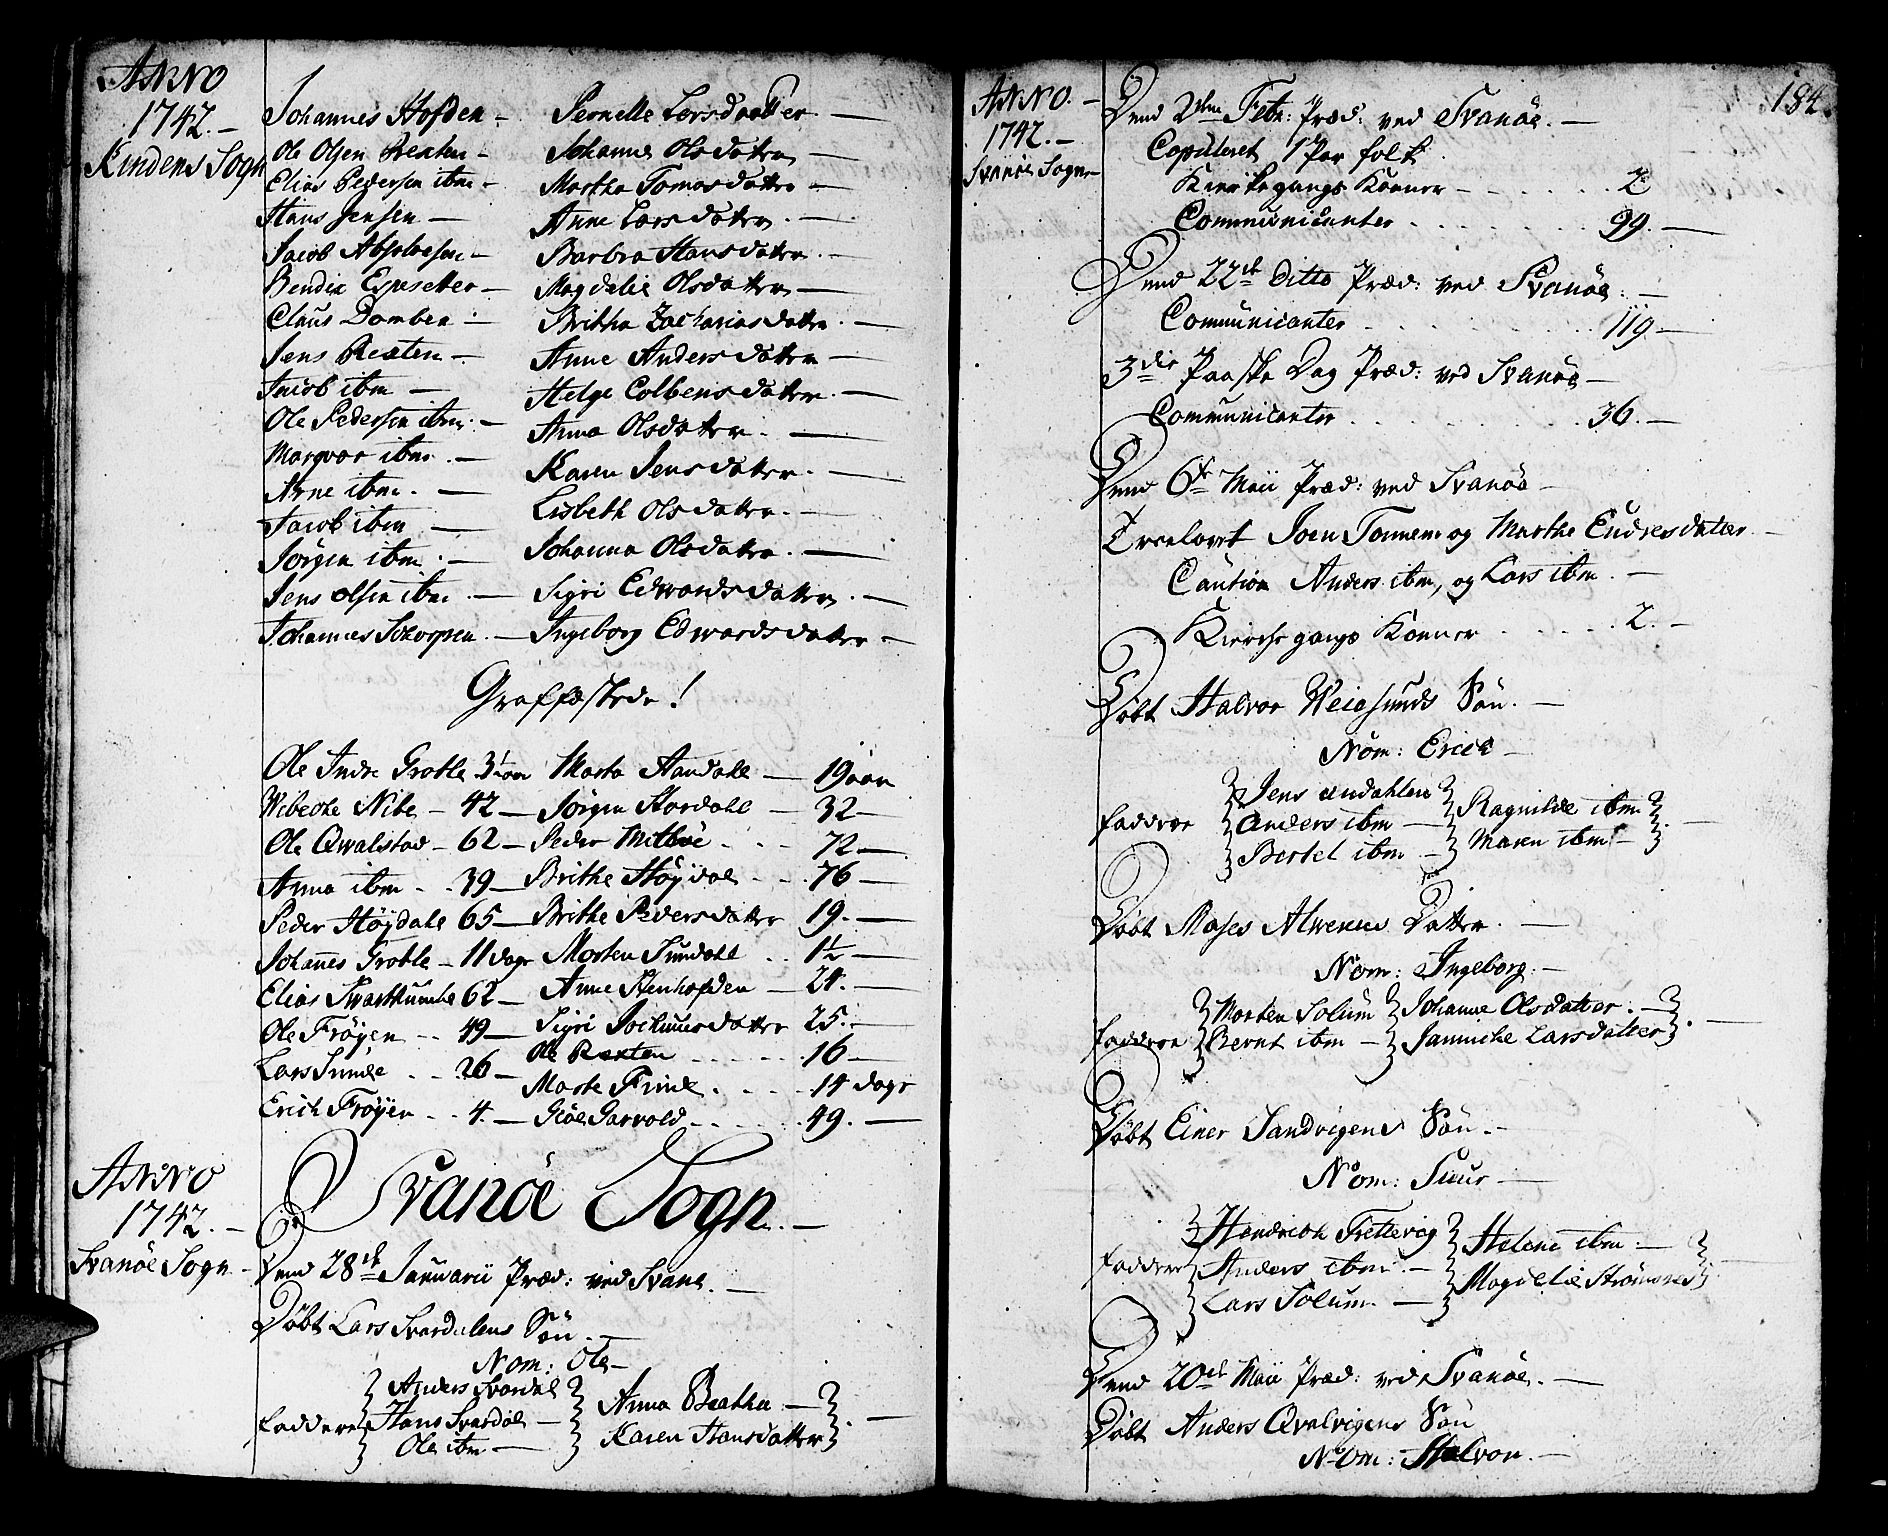 Anno
1742.—
Kindens Sogn
Johannes Hofden — Pernelle Larsdaatter —
Ole Olsen Rexten — Johanne Olsdatter —
Elias Pedersen ibm — Martha Tomasdatter —
Hans Jensen — Anne Larsdatter. —
Jacob Absolonsen — Barbra Hansdatter. —
Bendix Espesetter — Magdalie Olsdatter —
Claus Domben — Britha Zachariasdatter. —
Jens Rexten — Anne Andersdatter —
Jacob ibm — Helge Colbensdatter. —
Ole Pedersen ibm. — Anna Olsdatter. —
Margvar ibm. — Karen Jensdatter. —
Arne ibm. — Lisbeth Olsdatter. —
Jacob ibm — Johanna Olsdatter. —
Jörgen ibm. — Sigri Edwardsdatter. —
Jens Olsen ibm. — Ingeborg Edwardsdatter —
Johannes —
Graffæstede!
Ole Indre Grotle 3 aar Marta Aandahl — 19 aar
Wibeche Nibe — 42 — Jörgen Stordahl — 32 —
Ole Qwalstad — 62 — Peder — 72 —
Anna ibm — 39 — Brithe Höÿdal — 76 —
Peder Höÿdahl 65 — Brithe Pedersdatter 19. —
Johannes Grotle — 11 dage Morten Sundahl — 1½ —
Elias 62 — Anne Stenhofden — 24. —
Ole Fröyen — 49 — Sigri Jochumsdatter 25. —
Lars Sunde — 26 — Ole Rexten — 16 —
Erich Fröÿen — 4. — Marte — 14 dage
Giöe Garvold — 49. —
Anno
1742. —
Svanöe Sogn —
Svanöe Sogn. —
Dend 28de Januarii Præd: ved Svanöe. —
Döbt Lars Svardalens Sön. —
Nom: Ole —
Faddere Anders Svardal
Hans Svardal —
Ole ibm —
Anna Beatha —
Karen Hansdatter
184.
Anno. —
1742. —
Svanöe Sogn —
Dend 2den Febr: Præd: ved Svanöe. —
Copuleret 1 Par folk.
Kierkegangs Koner — 2
Communicanter 99. —
Dend 22de Ditto Præd: ved Svanöe: —
Communicanter 119 —
3die Paaske Dag Præd: ved Svanöe —
Communicanter 36. —
Dend 6te Maii Præd: ved Svanöe —
Troelovet Joen Tonnem og Marthe Endresdatter —
Caution Anders ibm, og Lars ibm. —
Kierche gangs Konner 2. —
Döbt Halvor Weiesunds Sön. —
Nom: Erich —
Faddere Jens Andahlen
Anders ibm —
Bertel ibm —
Ragnilde ibm
Maren ibm —
Döbt Moses Alwerens Datter. —
Nom: Ingeborg. —
Faddere Morten Solum
Bernt ibm —
Johanne Olsdatter. —
Janniche Larsdatter
Döbt Einer Sandvigens Sön. —
Nom: Siur —
Faddere Hendrich Frettevig
Anders ibm —
Lars Solum —
Helene ibm —
Magdelie Strömsnes
Dend 20de Maii Præd: ved Svanöe. —
Döbt Anders Qvalvigens Sön
Nom: Halvor. —